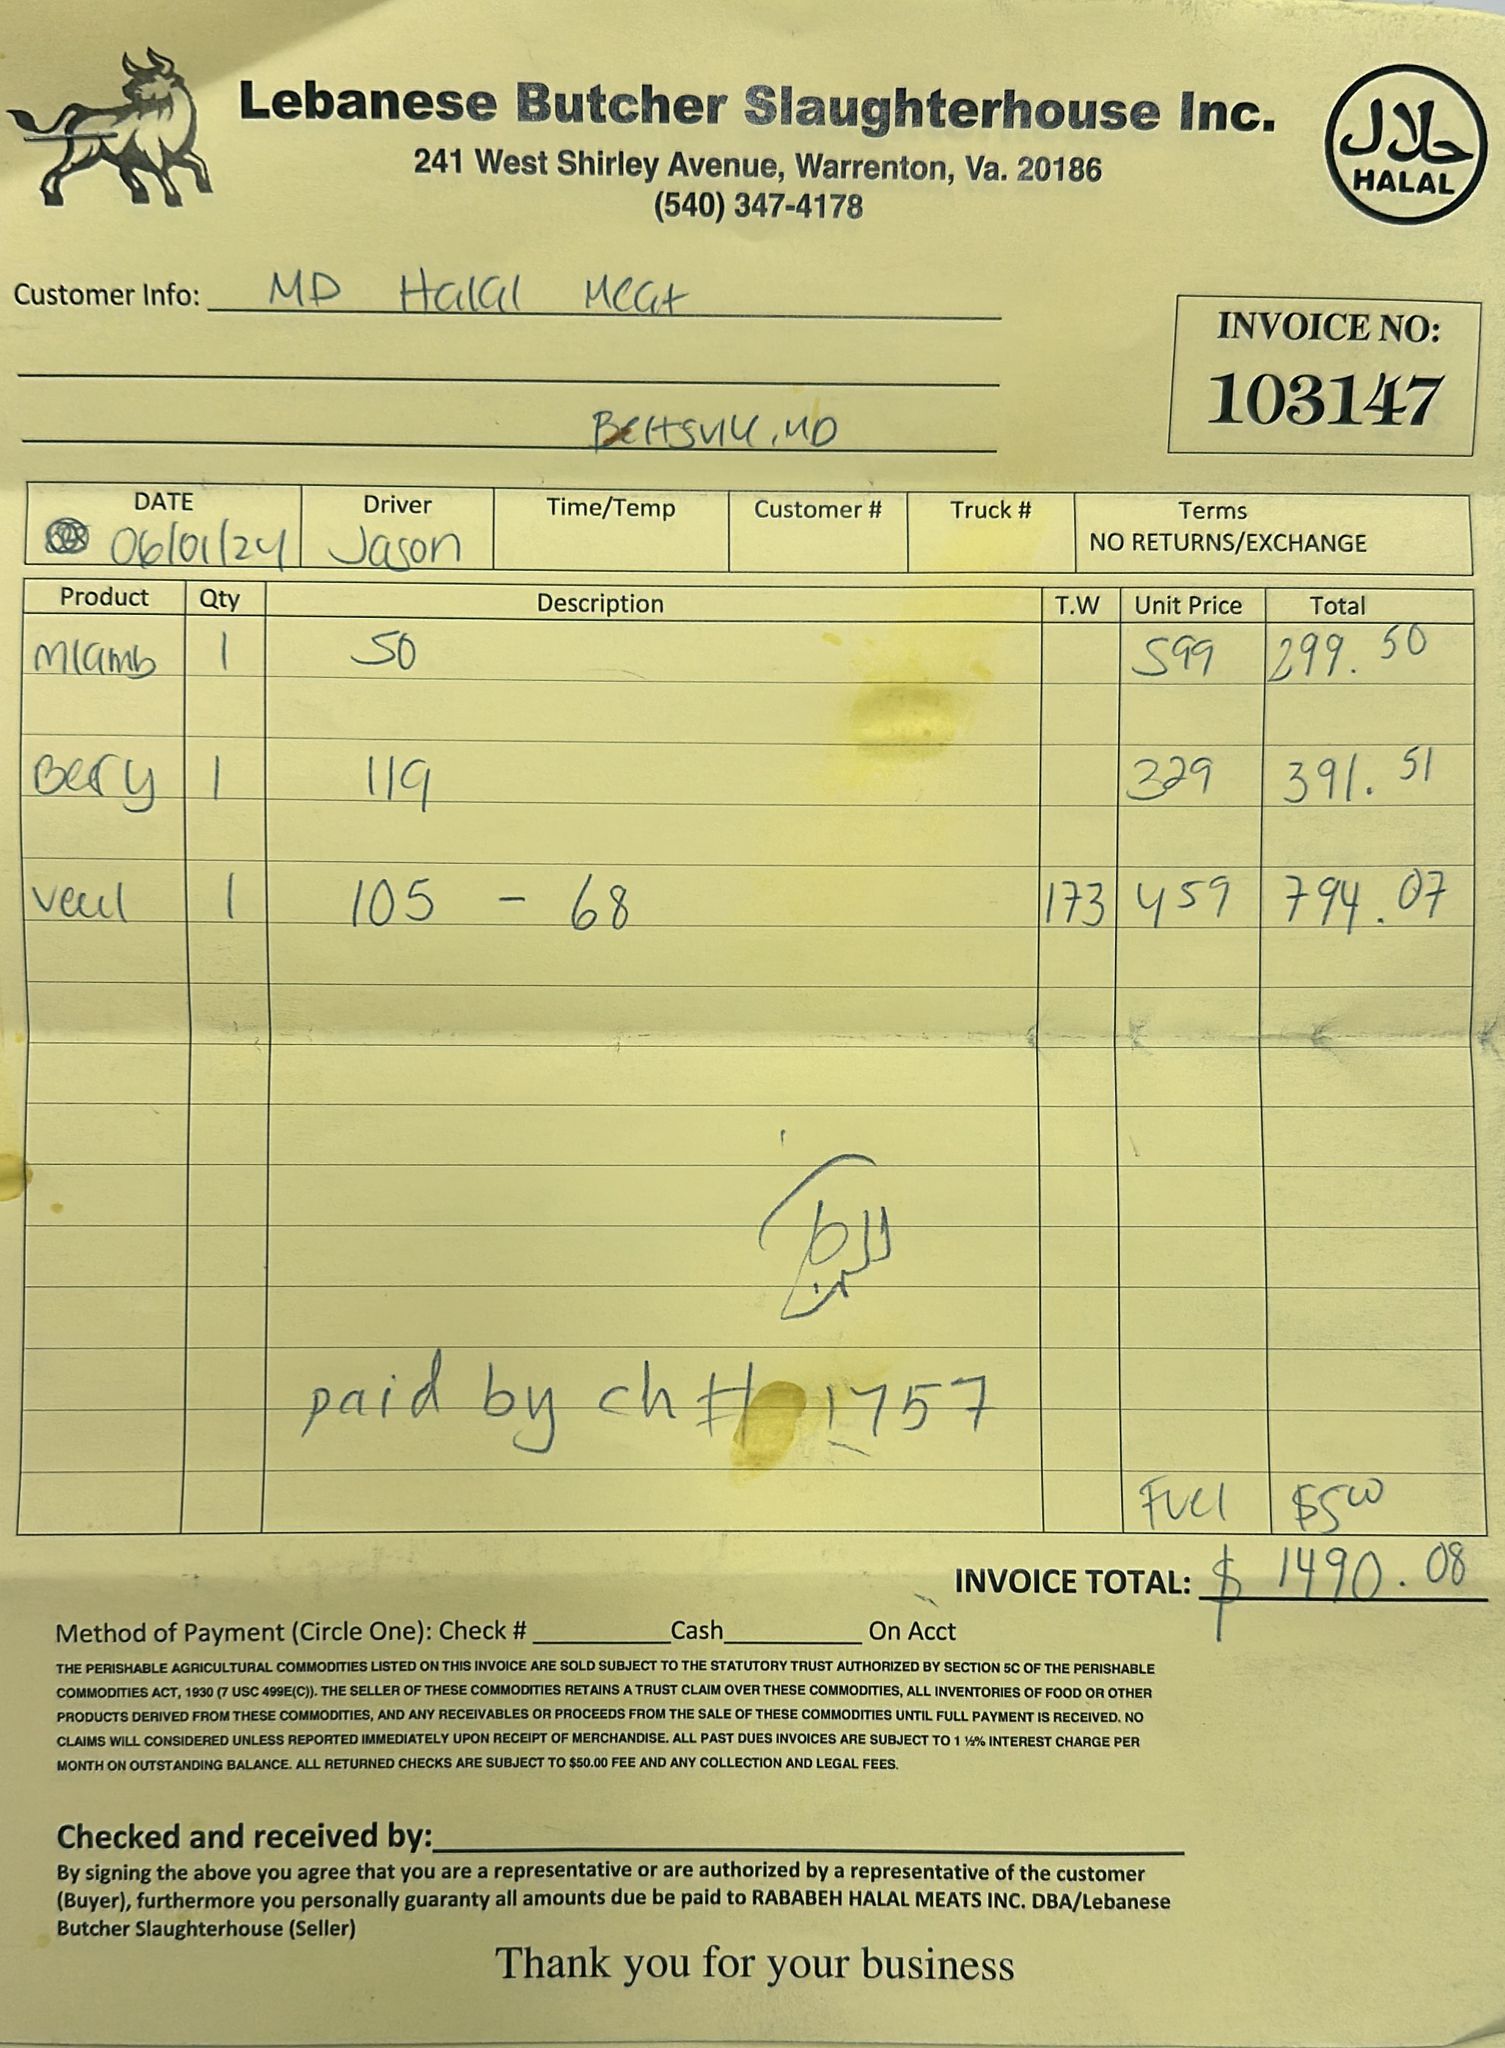 Lebanese Butcher Slaughterhouse Inc.
241 West Shirley Avenue, Warrenton, Va. 20186
(540) 347-4178
حلال
HALAL
Customer Info: MD Halal Meat
INVOICE NO:
103147
Beltsville, MD
DATE Driver Time/Temp Customer # Truck # Terms
06/01/24 Jason NO RETURNS/EXCHANGE
Product Qty Description T.W Unit Price Total
Mlamb 1 50 599 299.50
1 119 329 391.51
Veal 1 105 - 68 173 459 794.07
paid by ch # 1757
Fuel $5.00
INVOICE TOTAL: $ 1490.08
Method of Payment (Circle One): Check # Cash On Acct
THE PERISHABLE AGRICULTURAL COMMODITIES LISTED ON THIS INVOICE ARE SOLD SUBJECT TO THE STATUTORY TRUST AUTHORIZED BY SECTION 5C OF THE PERISHABLE
COMMODITIES ACT, 1930 (7 USC 499E(C)). THE SELLER OF THESE COMMODITIES RETAINS A TRUST CLAIM OVER THESE COMMODITIES, ALL INVENTORIES OF FOOD OR OTHER
PRODUCTS DERIVED FROM THESE COMMODITIES, AND ANY RECEIVABLES OR PROCEEDS FROM THE SALE OF THESE COMMODITIES UNTIL FULL PAYMENT IS RECEIVED. NO
CLAIMS WILL CONSIDERED UNLESS REPORTED IMMEDIATELY UPON RECEIPT OF MERCHANDISE. ALL PAST DUES INVOICES ARE SUBJECT TO 1 ½% INTEREST CHARGE PER
MONTH ON OUTSTANDING BALANCE. ALL RETURNED CHECKS ARE SUBJECT TO $50.00 FEE AND ANY COLLECTION AND LEGAL FEES.
Checked and received by:
By signing the above you agree that you are a representative or are authorized by a representative of the customer
(Buyer), furthermore you personally guaranty all amounts due be paid to RABABEH HALAL MEATS INC. DBA/Lebanese
Butcher Slaughterhouse (Seller)
Thank you for your business